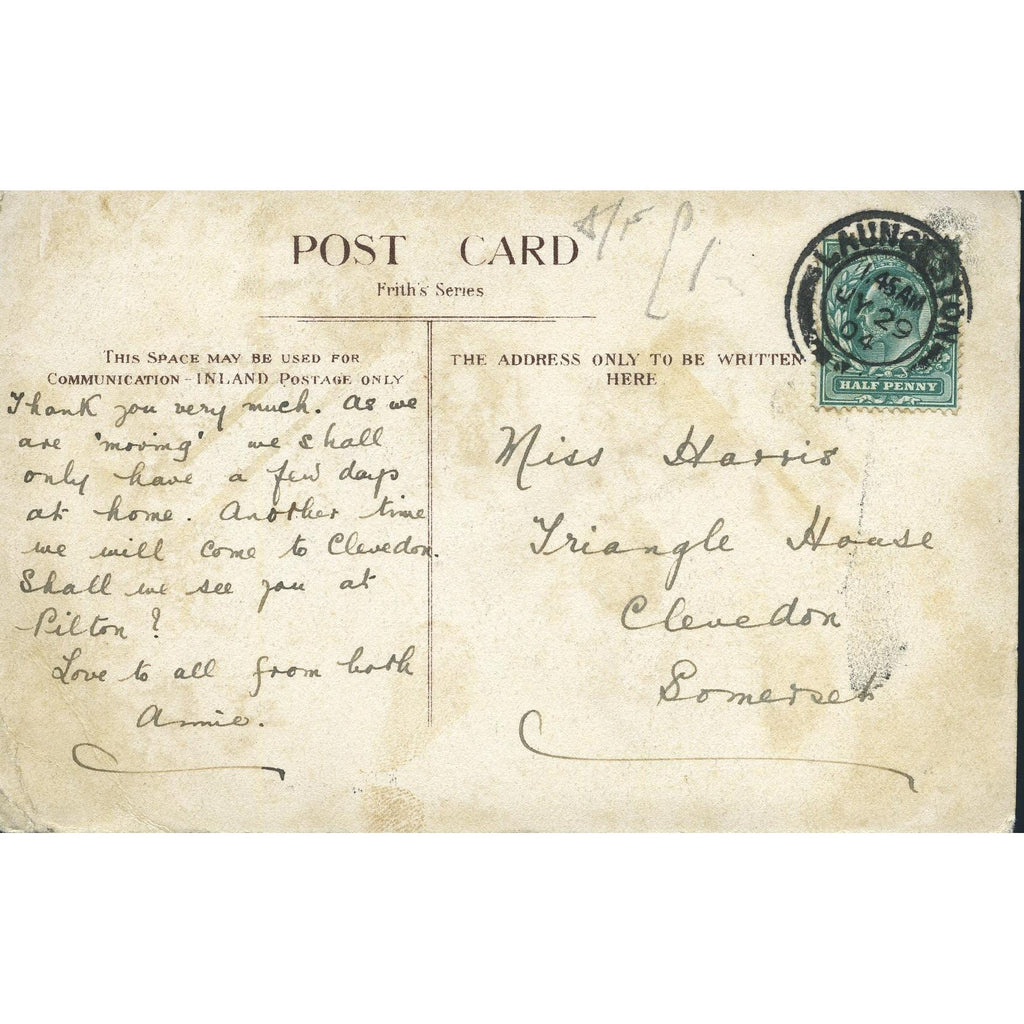 POST CARD
Frith's Series
THIS SPACE MAY BE USED FOR
COMMUNICATION - INLAND POSTAGE ONLY
THE ADDRESS ONLY TO BE WRITTEN
HERE
LAUNCESTON
1.45 AM
JY 29
04
HALF PENNY
Thank you very much. As we
are 'moving' we shall
only have a few days
at home. Another time
we will come to Clevedon.
Shall we see you at
Pilton?
Love to all from both
Annie.
Miss Harris
Triangle House
Clevedon
Somerset